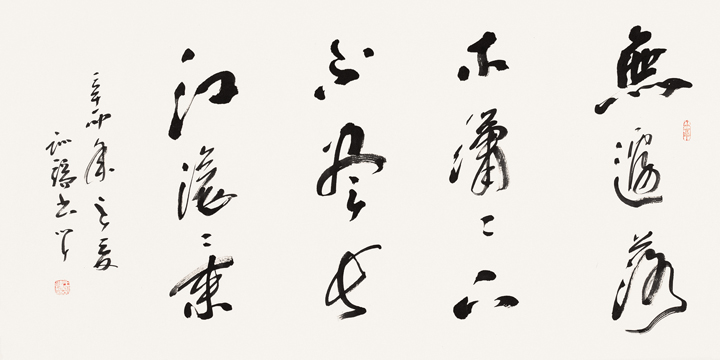 無邊落
木蕭〻下
不盡長
江滾〻來
辛卯年之夏